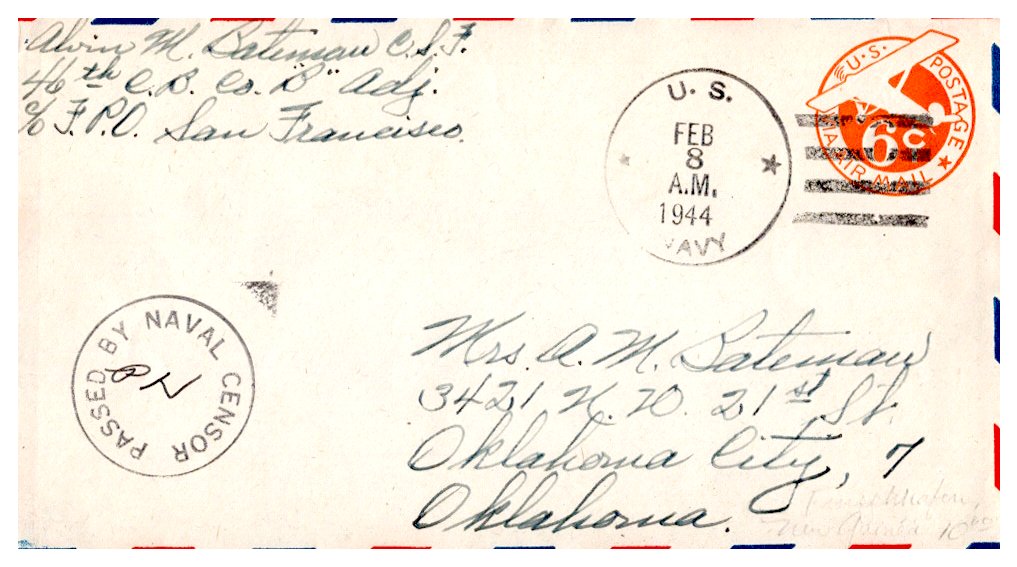 Alvin M. Bateman C.S.F.
46th C.B. Co. "B" Adj.
c/o F.P.O. San Francisco.
U.S. POSTAGE
6c
VIA AIR MAIL
U. S.
FEB
8
A.M.
1944
NAVY
PASSED BY NAVAL CENSOR
Mrs. A. M. Bateman
3421 N. W. 21st St.
Oklahoma City, 7
Oklahoma.
New Guinea 10